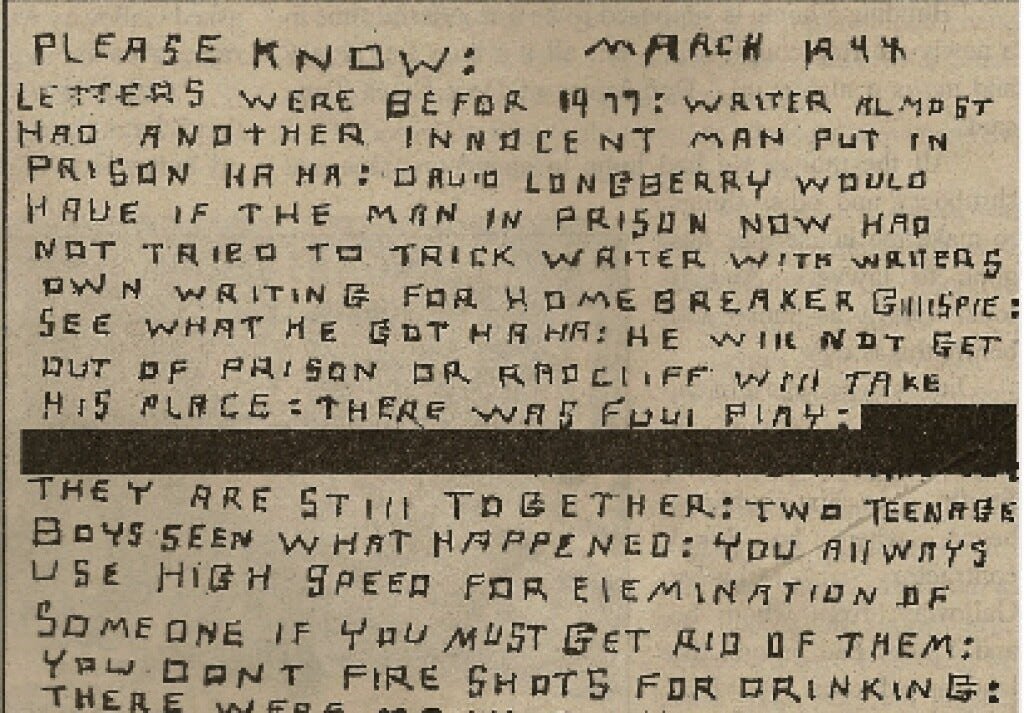 PLEASE KNOW: MARCH
LETTERS WERE BEFOR 1977: WRITER ALMOST
HAD ANOTHER INNOCENT MAN PUT IN
PRISON HA HA: DAVID LONGBERRY WOULD
HAVE IF THE MAN IN PRISON NOW HAD
NOT TRIED TO TRICK WRITER WITH WRITERS
OWN WRITING FOR HOMEBREAKER GILLISPIE:
SEE WHAT HE GOT HA HA: HE WILL NOT GET
OUT OF PRISON OR RADCLIFF WILL TAKE
HIS PLACE: THERE WAS FOUL PLAY:
THEY ARE STILL TOGETHER: TWO TEENAGE
BOYS SEEN WHAT HAPPENED: YOU ALLWAYS
USE HIGH SPEED FOR ELEMINATION OF
SOMEONE IF YOU MUST GET RID OF THEM:
YOU DONT FIRE SHOTS FOR DRINKING:
THERE WERE